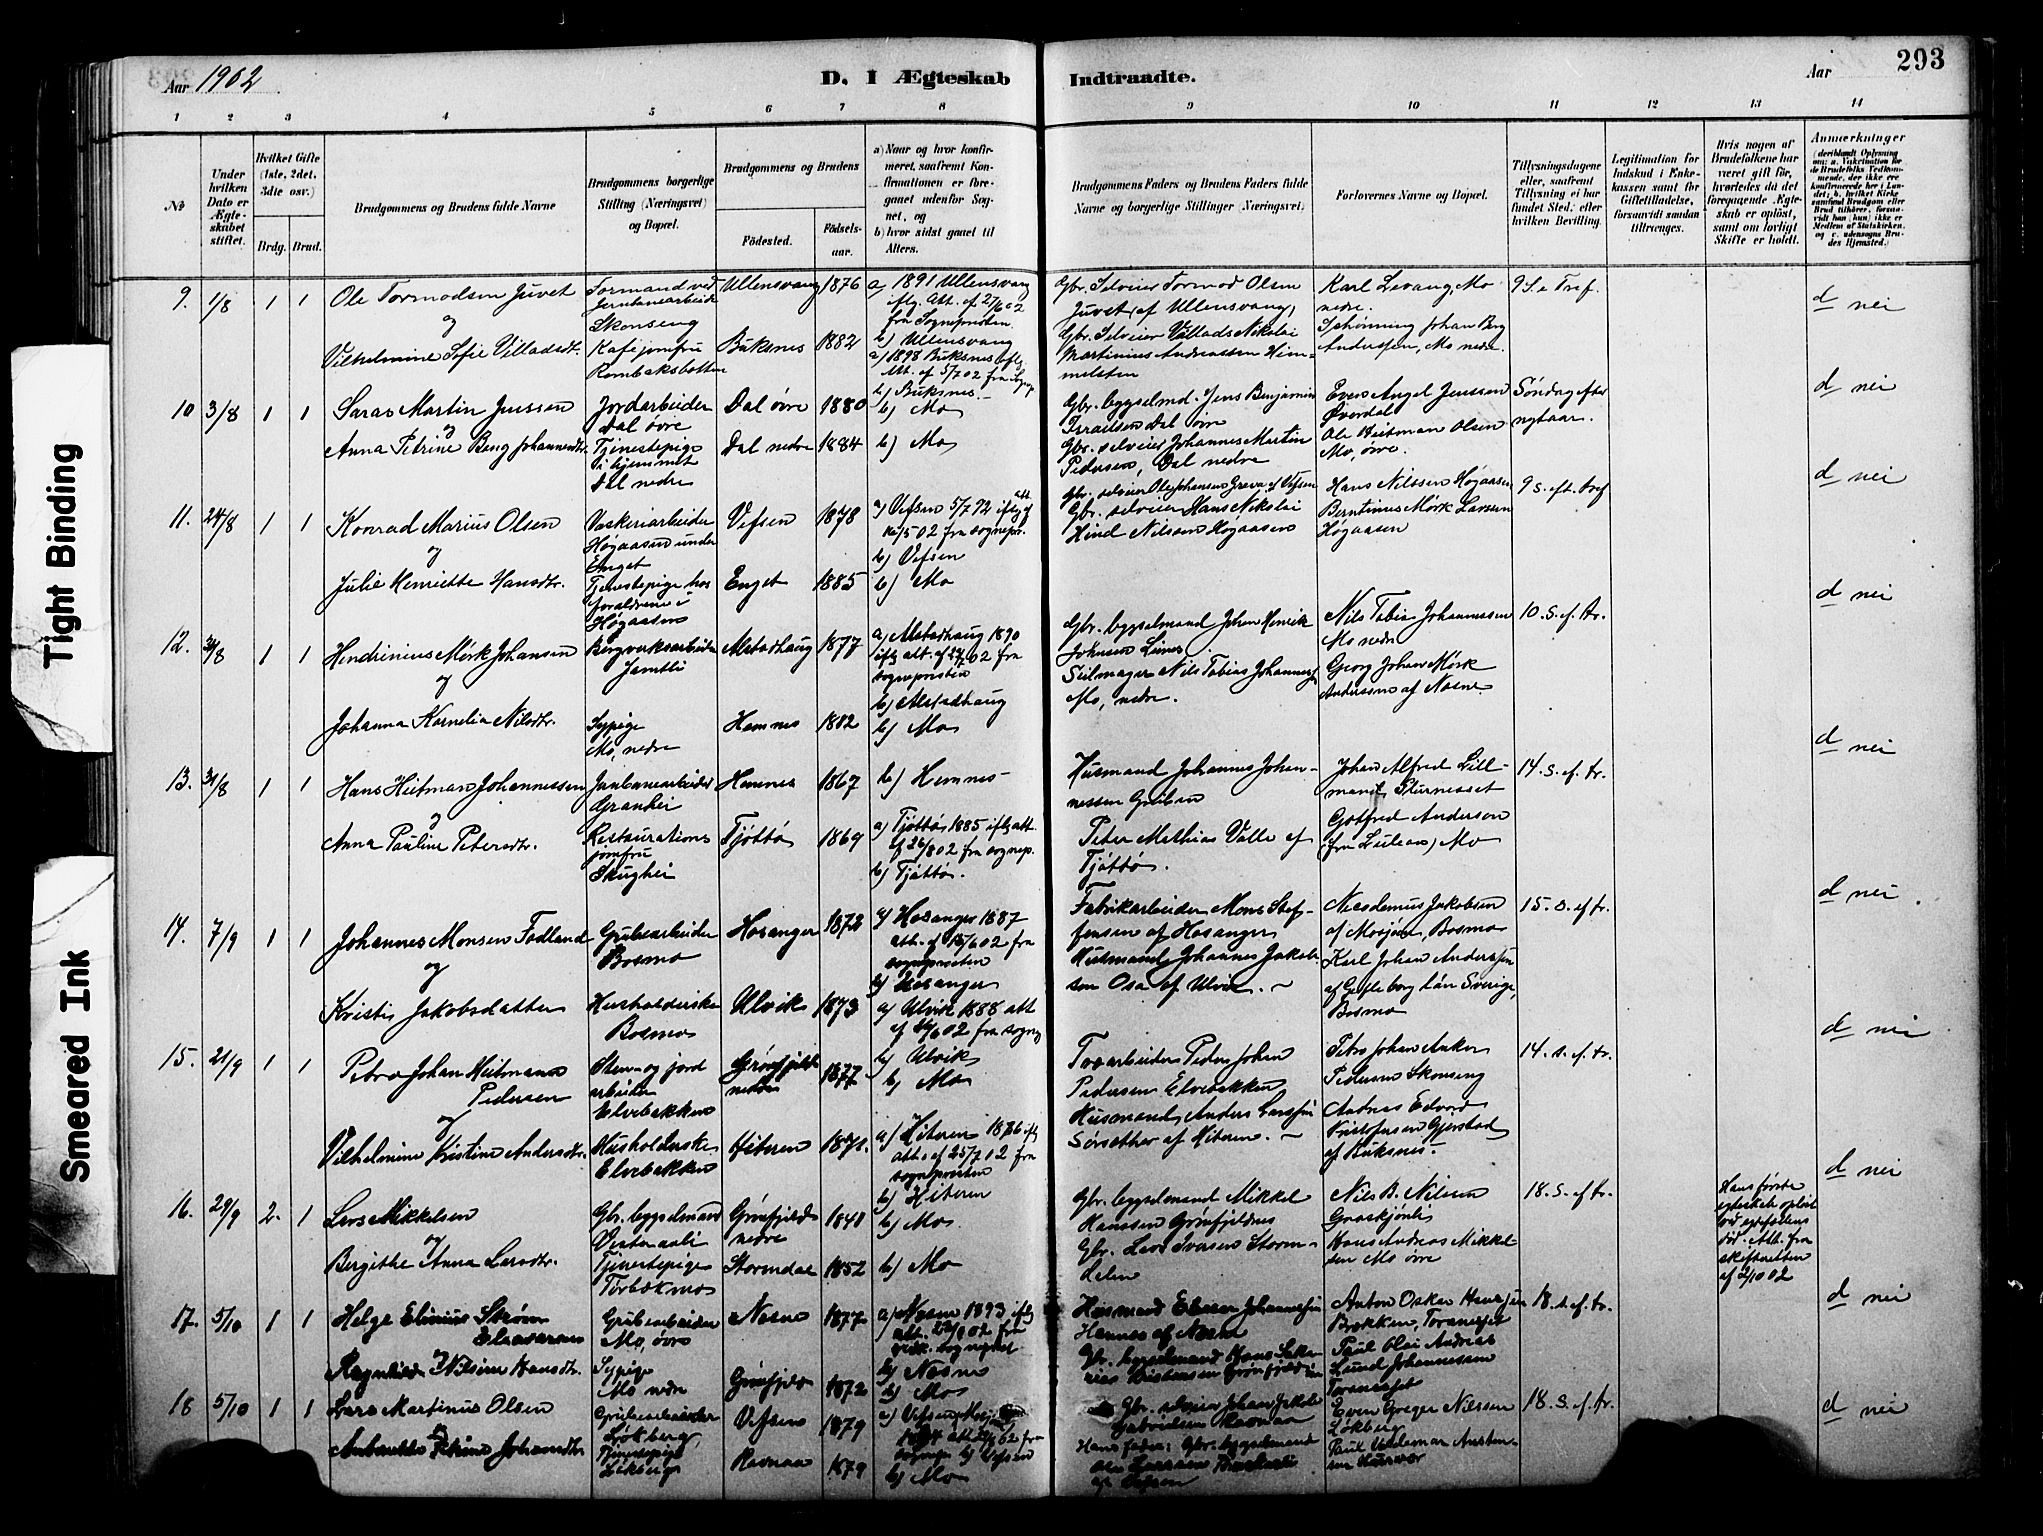 293
Aar 1902
D. I Ægteskab Indtraadte.
Aar
1 2 3 4 5 6 7 8 9 10 11 12 13 14
No
Under hvilken Dato er Ægteskabet stiftet.
Hvilket Gifte (1ste, 2det, 3die osv.)
Brdg. Brud.
Brudgommens og Brudens fulde Navne
Brudgommens borgerlige Stilling (Næringsvei) og Bopæl.
Brudgommens og Brudens
Födested. Födselsaar.
a) Naar og hvor konfirmeret, saafremt Konfirmationen er foregaaet udenfor Sognet, og
b) hvor sidst gaaet til Alters.
Brudgommens Faders og Brudens Faders fulde Navne og borgerlige Stillinger (Næringsvei)
Forlovernes Navne og Bopæl.
Tillysningsdagene eller, saafremt Tillysning ei har fundet Sted, efter hvilken Bevilling.
Legitimation for Indskud i Enkekassen samt for Giftetilladelse, forsaavidt saadan tiltrænges.
Hvis nogen af Brudefolkene har været gift för, hvorledes da det foregaaende Ægteskab er oplöst, samt om lovligt Skifte er holdt.
Anmærkninger
9. 1/8 1 1 Ole Tormodsen Juvet
og
Vilhelmine Sofie Villadsdtr.
Formand ved Jernbanearbeide Skonseng
Kafejomfru Rombaksbotten
Ullensvang 1876
Buksnes 1882
a) 1891 Ullensvang iflg. Att. af 27/6 02 fra Sognepresten.
b) Ullensvang
a) 1898 Buksnes iflg. Att. af 5/7 02 fra Sognep.
b) Buksnes.
Gbr. Selveier Tormod Olsen Juvet (af Ullensvang)
Gbr. Selveier Villads Nikolai Martinius Andreassen Himmelsten
Karl Levang, Mo nedre.
Schönning Johan Berg Anderssen, Mo nedre.
9 S. e Tref.
d nei
10 3/8 1 1 Saras Martin Jenssen
og
Anna Petrine Berg Johannesdtr.
Jordarbeider Dal övre
Tjenestepige i hjemmet Dal nedre
Dal övre 1880
Dal nedre 1884
b) Mo
b) Mo
Gbr. bygselmd. Jens Benjamin Israelsen Dal övre
Gbr. selveier Johannes Martin Pedersen, Dal nedre
Evens Angel Jenssen Överdal
Ole Heitman Olsen Mo, övre.
Söndag efter nytaar.
d nei
11. 24/8 1 1 Konrad Marius Olsen
og
Julie Henriette Hansdtr.
Vaskeriarbeider Högaasen under Enget
Tjenestepige hos forældrene i Högaasen
Vefsen 1878
Enget 1885
a) Vefsen 5/7 92 iflg att. af 16/5 02 fra sognepr.
b) Vefsen
b) Mo
Gbr. selveier Ole Johansen Greva af Vefsen
Gbr. selveier Hans Nikolai Hind Nilssen Högaasen
Hans Nilssen Högaasen
Berntinus Mörk Larsen Högaasen
9 s. eft. tref
d nei
12. 31/8 1 1 Hendrinius Mörk Johansen
og
Johanna Kornelia Nilsdtr.
Bergverksarbeider Jamtli
Sypige Mo, nedre
Alstadhaug 1877
Hemnes 1882
a) Alstadhaug 1890 iflg att. af 24/7 02 fra sognepresten
b) Alstadhaug
b) Mo
Gbr. bygselmand Johan Henrik Johnsen Lines.
Seilmager Nils Tobias Johannessen Mo, nedre.
Nils Tobias Johannessen Mo nedre
Georg Johan Mörk Anderssen af Nesne.
10. S. ef. tr.
d nei
13. 31/8 1 1 Hans Heitman Johannessen
og
Anna Pauline Petersdtr.
Jernbanearbeider Granhei
Restaurationsjomfru Skughei
Hemnes 1867
Tjöttö 1869
b) Hemnes
a) Tjöttö 1885 iflg att. af 26/8 02 fra sognep.
b) Tjöttö.
Husmand Johannes Johannessen Gruben
Peter Mathias Valle af Tjöttö.
Johan Alfred Lillmand, Sturnesset
Gotfred Anderson (fra Luleaa) Mo
14. s. ef. tr.
d nei
14. 7/9 1 1 Johannes Monsen Fodland
og
Kristi Jakobsdatter
Grubearbeider Bosmo
Husholderske Bosmo
Hosanger 1872
Ulvik 1873
a) Hosanger 1887 att. af 15/6 02 fra sognepresten
b) Hosanger
a) Ulvik 1888 att af 16/6 02 fra sognep
b) Ulvik
Fabrikarbeider Mons Steffensen af Hosanger
Husmand Johannes Jakobsen Osa af Ulvik.
Nicodemus Jakobsen af Mosjöen, Bosmo
Karl Johan Anderssen af Gefleborg Län Sverige, Bosmo
15. s. ef tr.
d nei
15. 21/9 1 1 Petro Johan Heitmann Pedersen
og
Vilhelmine Kristine Andersdtr.
Sten- og jordarbeider Elvebakken
Husholderske Elvebakken
Grönfjeld nedre 1877
Hiteren 1878.
b) Mo
a) Hiteren 1876 iflg att. af 25/7 02 fra sognepresten
b) Hiteren
Toarbeider Peder Johan Pedersen Elvebakken
Husmand Anders Larssen Sörsether af Hiteren.
Petro Johan Anker Pedersen Skonseng
Andreas Edvard Kristofersen Gjerstad af Buksnes.
14. s. ef. tr.
d nei
16. 29/9 2. 1 Lars Mikkelsen
og
Bergithe Anna Larsdtr.
Gbr. bygselmand Vesteraali
Tjenestepige Törbækmo
Grönfjeld nedre 1848
Stormdal 1852
b) Mo.
b) Mo
Gbr. bygselmand Mikkel Hanssen Grönfjeldnes
Gbr. Lars Iversen Stormdalen
Nils B. Nilsen Graakjönli
Hans Andreas Mikkelsen Mo övre
18. S. ef tr.
Hans förste egteskab oplöst ved egtefællens död. Att. fra skifteretten af 2/10 02
d nei
17. 5/10 1 1 Helge Elinius Ström Eliasarsen
og
Ragnhild Nilsine Hansdtr.
Grubearbeider Mo, övre
Sypige Mo nedre
Nesne 1877
Grönfjeld 1872
a) Nesne 1893 iflg att.
b) Nesne
b) Mo
Husmand Johannessen Hammer af Nesne
Gbr. bygselmand Hans
Anton Oskar Hanssen Brekken, Toraneset
Paul Olai Andreas Lund Johannessen Toraneset
18. s. ef. tr.
d nei
18 5/10 1 1 Lars Martinus Olsen
og
Petrine Johansdtr.
Grubearbeider Lökberg
Tjenestepige Lökberg
Vefsen 1879
Ravnaa 1879
a) Vefsen
b) Vefsen
b) Mo
Gbr. selveier Johan Gabrielsen Ravnaa
Hans fader: Gbr. bygselmand Ole Larssen af Vefsen
Even Greger Nilssen Lökberg
Paul Valdemar
18. S. ef. tr.
d nei
Tight Binding
Smeared Ink